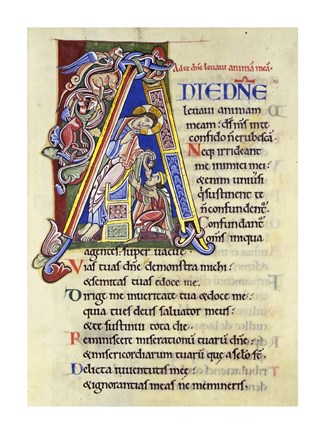 Ad te dñe leuaui animã meã·
ADTEDÑE
leuaui animam
meam: ds̃ ms̃ inte
confido ñ erubescã·
Neq; irrideant
me inimici mei:
&enim uniuersi
q̃ sustinent te
ñ confundent̃·
Confundant̃
oms̃ iniqua
agentes: super uacue·
Vias tuas dñe demonstra michi:
&semitas tuas edoce me·
Dirige me inueritate tua &doce me:
quia tu es deus saluator meus:
&te sustinui tota die·
Reminiscere miserationũ tuarũ dñe:
&misericordiarum tuarũ que a sc̃lo st̃·
Delicta iuuentutis mee:
&ignorantias meas ne memineris·